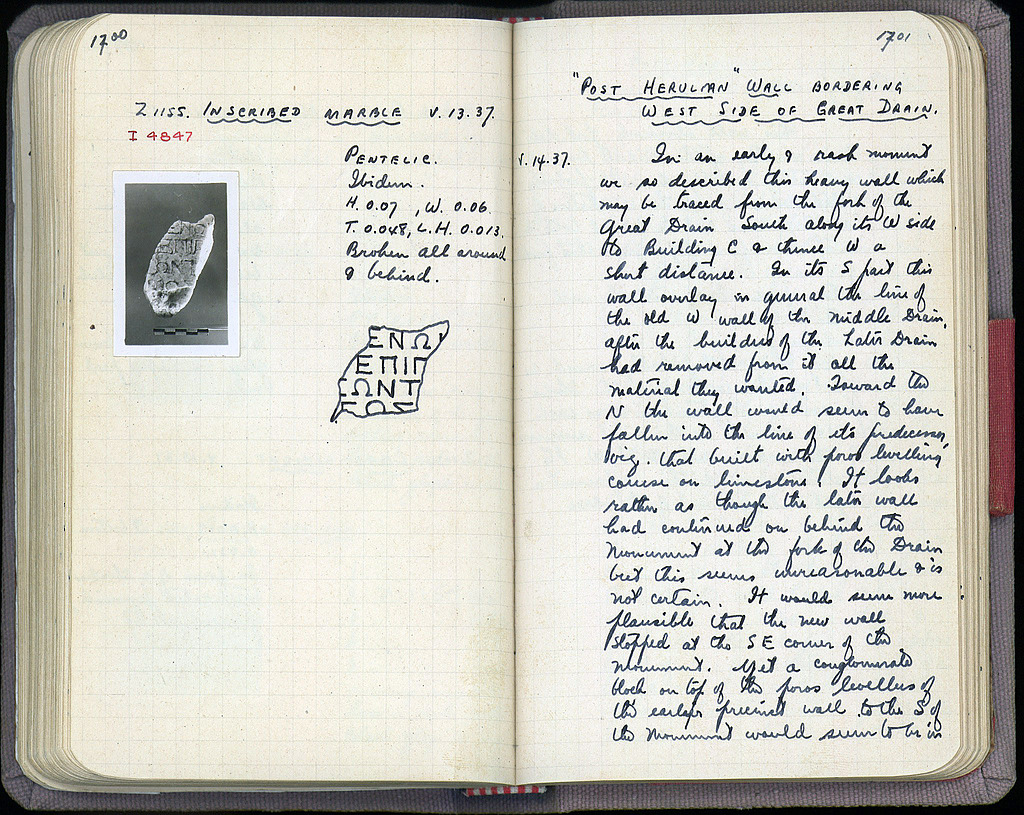 1700
Z 1155. INSCRIBED MARBLE V.13.37.
I 4847
PENTELIC.
Ibidem.
H. 0.07 , W. 0.06.
T. 0.048, L.H. 0.013.
Broken all around
& behind.
ΕΝΩ
ΕΠΙΓ
ΩΝΤ
ΕΩΣ
1701
"POST HERULIAN" WALL BORDERING
WEST SIDE OF GREAT DRAIN.
V.14.37. In an early & rash moment
we so described this heavy wall which
may be traced from the fork of the
Great Drain South along its W side
to Building C & thence W a
short distance. In its S part this
wall overlay in general the line of
the old W wall of the Middle Drain,
after the builders of the Later Drain
had removed from it all the
material they wanted. Toward the
N the wall would seem to have
fallen into the line of its predecessor,
viz. that built with poros levelling
course on limestone. It looks
rather as though the later wall
had continued on behind the
Monument at the fork of the Drain
but this seems unreasonable & is
not certain. It would seem more
plausible that the new wall
stopped at the SE corner of the
monument. Yet a conglomerate
block on top of the poros levellers of
the earlier precinct wall to the S of
the Monument would seem to be in